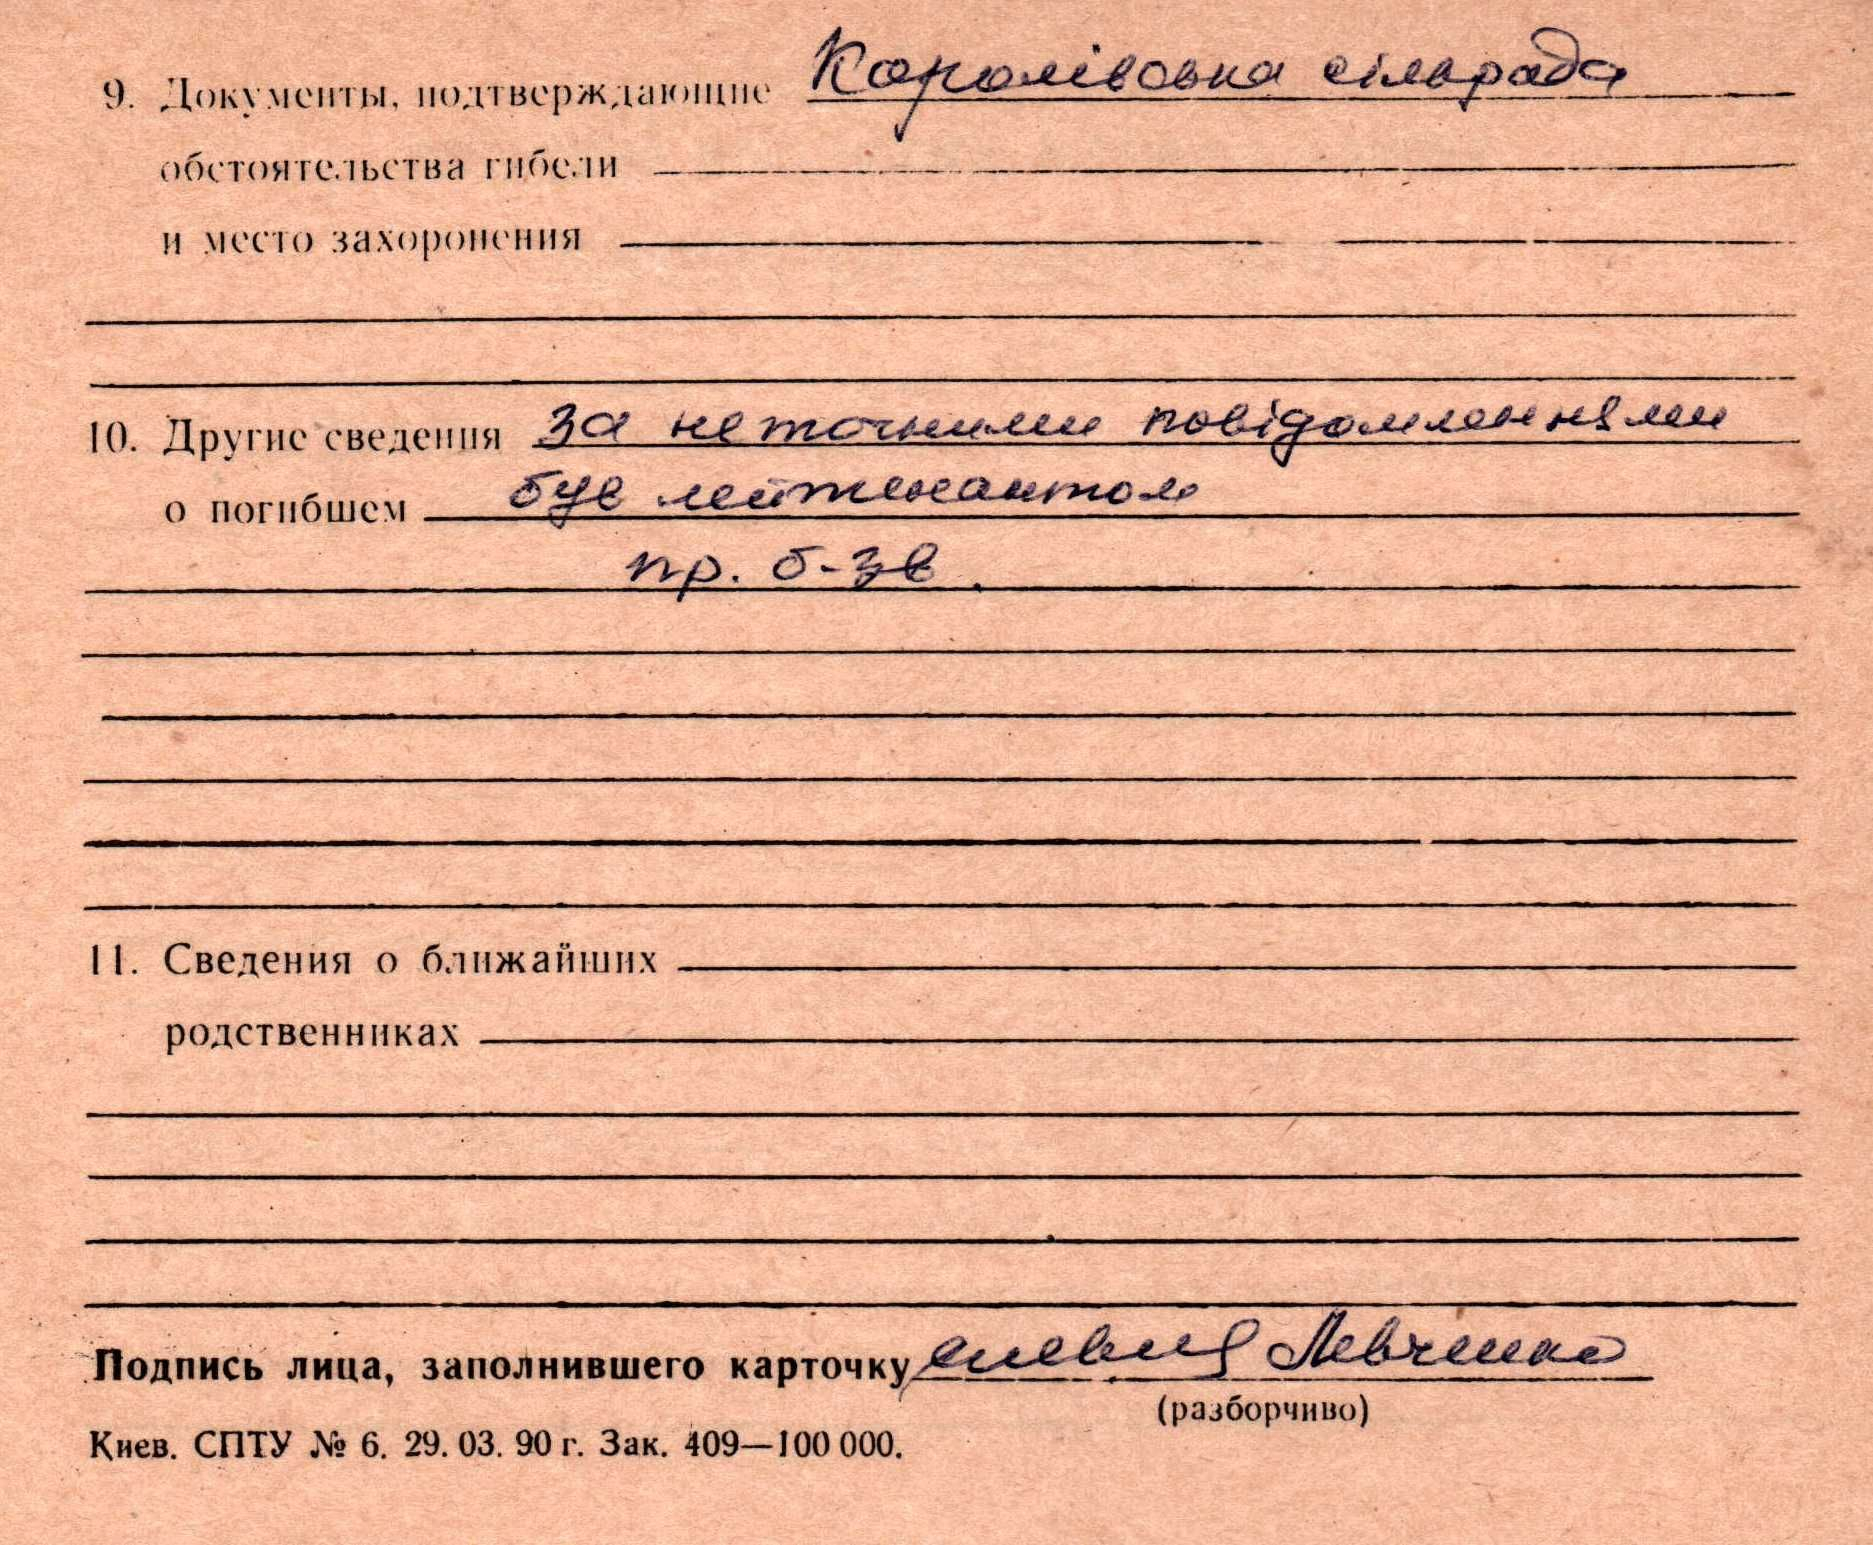 9. Документы, подтверждающие Королівська сільрада
обстоятельства гибели
и место захоронения
10. Другие сведения за неточними повідомленнями
о погибшем був лейтенантом
пр. б-зв.
11. Сведения о ближайших
родственниках
Подпись лица, заполнившего карточку Левченко
(разборчиво)
Киев. СПТУ № 6. 29. 03. 90 г. Зак. 409—100 000.